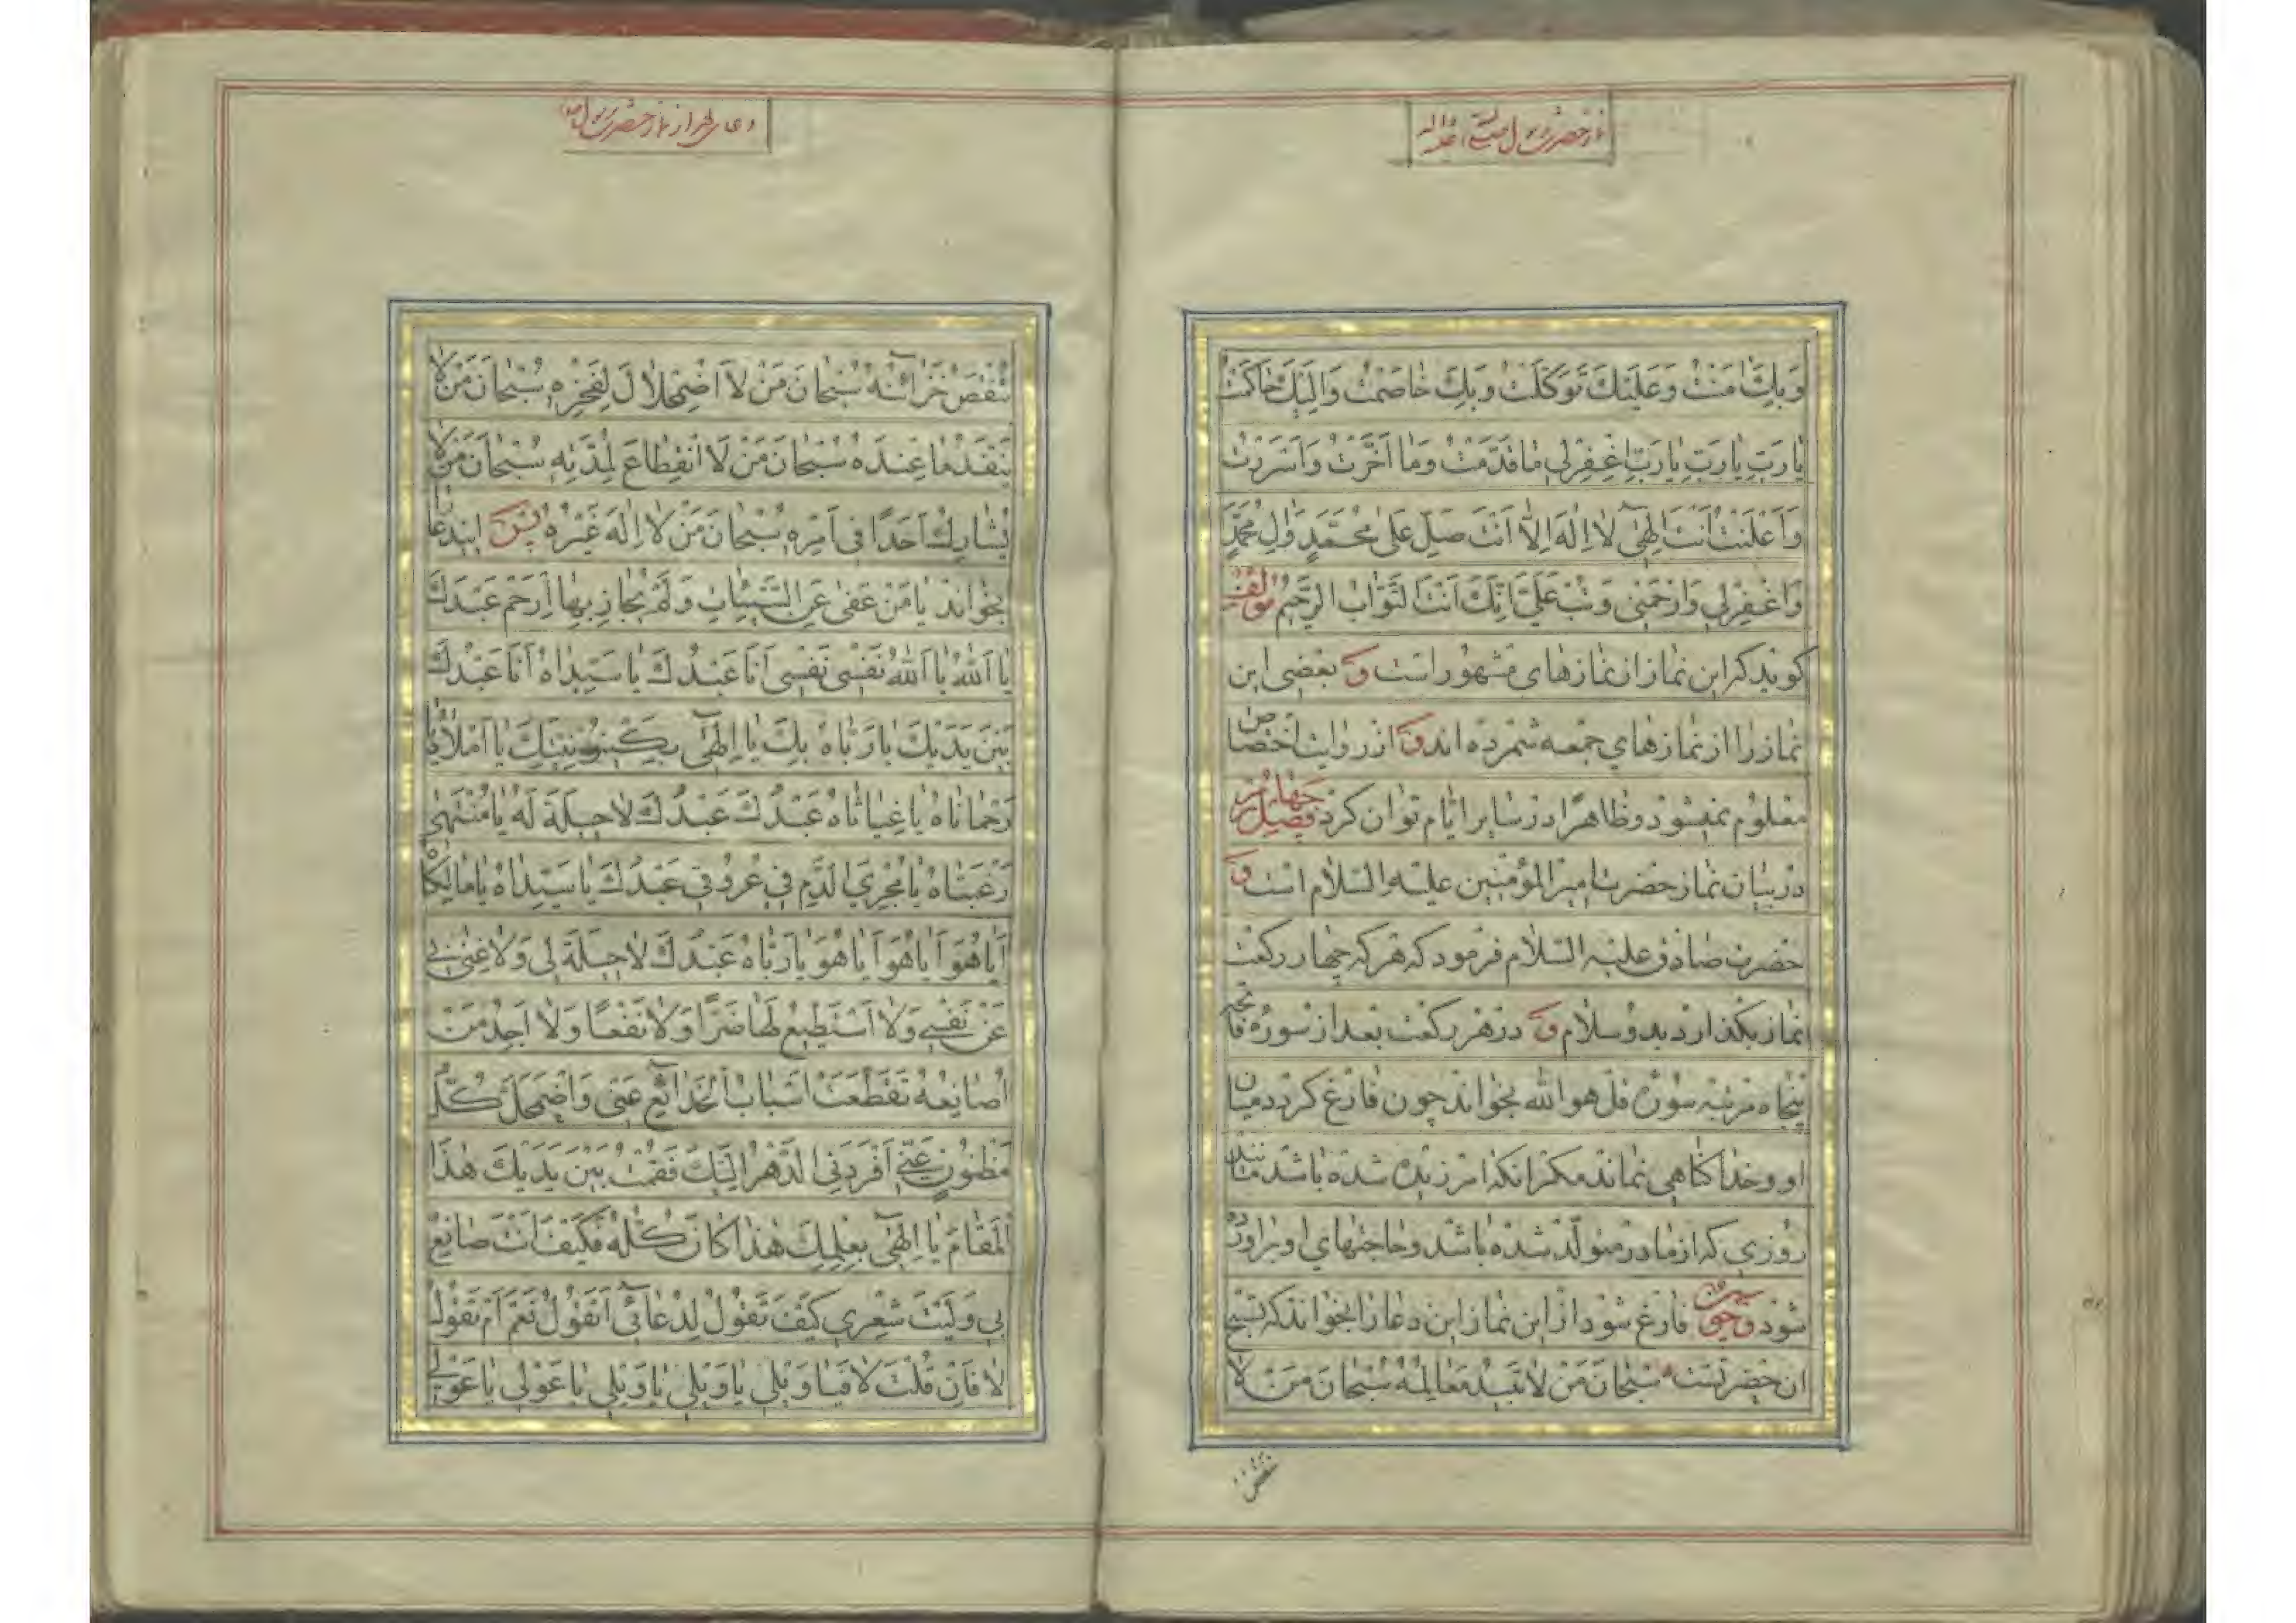 نماز حضرت رسول صلی الله علیه و اله
وَبِكَ اٰمَنْتُ وَعَلَيْكَ تَوَكَّلْتُ وَبِكَ خٰاصَمْتُ وَاِلَيْكَ حٰاكَمْتُ
يٰا رَبِّ يٰا رَبِّ يٰا رَبِّ اِغْفِرْلِي مٰا قَدَّمْتُ وَمٰا اَخَّرْتُ وَاَسْرَرْتُ
وَاَعْلَنْتُ اَنْتَ اِلٰهِيٓ لٰا اِلٰهَ اِلَّا اَنْتَ صَلِّ عَلىٰ مُحَمَّدٍ وَاٰلِ مُحَمَّدٍ
وَاغْفِرْلِي وَارْحَمْنِي وَتُبْ عَلَيَّ اِنَّكَ اَنْتَ التَّوّٰابُ الرَّحِيمُ مؤلف
کوید که این نماز از نمازهای مشهور است و بعضی این
نماز را از نمازهای جمعه شمرده اند و از روایت اختصاص
معلوم نمیشود و ظاهرا در سایر ایام توان کرد فصل چهارم
در بیان نماز حضرت امیر المؤمنین علیه السلام است و
حضرت صادق علیه السلام فرمود که هر که چهار رکعت
نماز بکذارد بدو سلام و در هر رکعت بعد از سوره فاتحه
پنجاه مرتبه سوره قل هو الله بخواند چون فارغ کردد میان
او و خدا کناهی نماند مکر انکه امرزیده شده باشد مانند
روزی که از مادر متولد شده باشد و حاجتهای او براورده
شود و چون فارغ شود از این نماز این دعا را بخواند که تسبیح
ان حضرتست سُبْحٰانَ مَنْ لٰا تَبِيدُ مَعٰالِمُهُ سُبْحٰانَ مَنْ لٰا
تنقص
دعای بعد از نماز حضرت رسول
تَنْقُصُ خَزٰآئِنُهُ سُبْحٰانَ مَنْ لٰا اَضْمِحْلٰالَ لِفَخْرِهِ سُبْحٰانَ مَنْ لٰا
يَنْفَدُ مٰا عِنْدَهُ سُبْحٰانَ مَنْ لَا انْقِطٰاعَ لِمُدَّتِهِ سُبْحٰانَ مَنْ لٰا
يُشٰارِكُ اَحَدًا فِى اَمْرِهِ سُبْحٰانَ مَنْ لٰا اِلٰهَ غَيْرُهُ پس ایندعا را
بخواند يٰا مَنْ عَفىٰ عَنِ السَّيِّئٰاتِ وَلَمْ يُجٰازِ بِهٰا اِرْحَمْ عَبْدَكَ
يٰا اَللّٰهُ يٰا اَللّٰهُ نَفْسِى نَفْسِى اَنَا عَبْدُكَ يٰا سَيِّدٰاهُ اَنَا عَبْدُكَ
بَيْنَ يَدَيْكَ يٰا رَبّٰاهُ بِكَ يٰا اِلٰهِيٓ بِكَيْنُونِيَّتِكَ يٰا اَمَلٰاهُ يٰا
رَحْمٰانٰاهُ يٰا غِيٰاثٰاهُ عَبْدُكَ عَبْدُكَ لٰا حِيلَةَ لَهُ يٰا مُنْتَهىٰ
رَغْبَتٰاهُ يٰا مُجْرِيَ الدَّمِ فِي عُرُوقِ عَبْدِكَ يٰا سَيِّدٰاهُ يٰا مٰالِكٰاهُ
اَيٰا هُوَ اَيٰا هُوَ اَيٰا هُوَ يٰا رَبّٰاهُ عَبْدُكَ لٰا حِيلَةَ لِي وَلٰا غِنىٰ بِي
عَنْ نَفْسِي وَلٰا اَسْتَطِيعُ لَهٰا ضَرًّا وَلٰا نَفْعًا وَلٰا اَجِدُ مَنْ
اُصٰانِعُهُ تَقَطَّعَتْ اَسْبٰابُ الْخَدٰآئِعِ عَنِّى وَاضْمَحَلَّ كُلُّ
مَظْنُونٍ عَنِّي اَفْرَدَنِي الدَّهْرُ اِلَيْكَ فَقُمْتُ بَيْنَ يَدَيْكَ هٰذَا
الْمَقٰامَ يٰا اِلٰهِيٓ بِعِلْمِكَ هٰذٰا كٰانَ كُلُّهُ فَكَيْفَ اَنْتَ صٰانِعٌ
بِي وَلَيْتَ شِعْرِي كَيْفَ تَقُولُ لِدُعٰآئِي اَتَقُولُ نَعَمْ اَمْ تَقُولُ
لٰا فَاِنْ قُلْتَ لٰا فَيٰا وَيْلِي يٰا وَيْلِي يٰا وَيْلِي يٰا عَوْلِي يٰا عَوْلِي